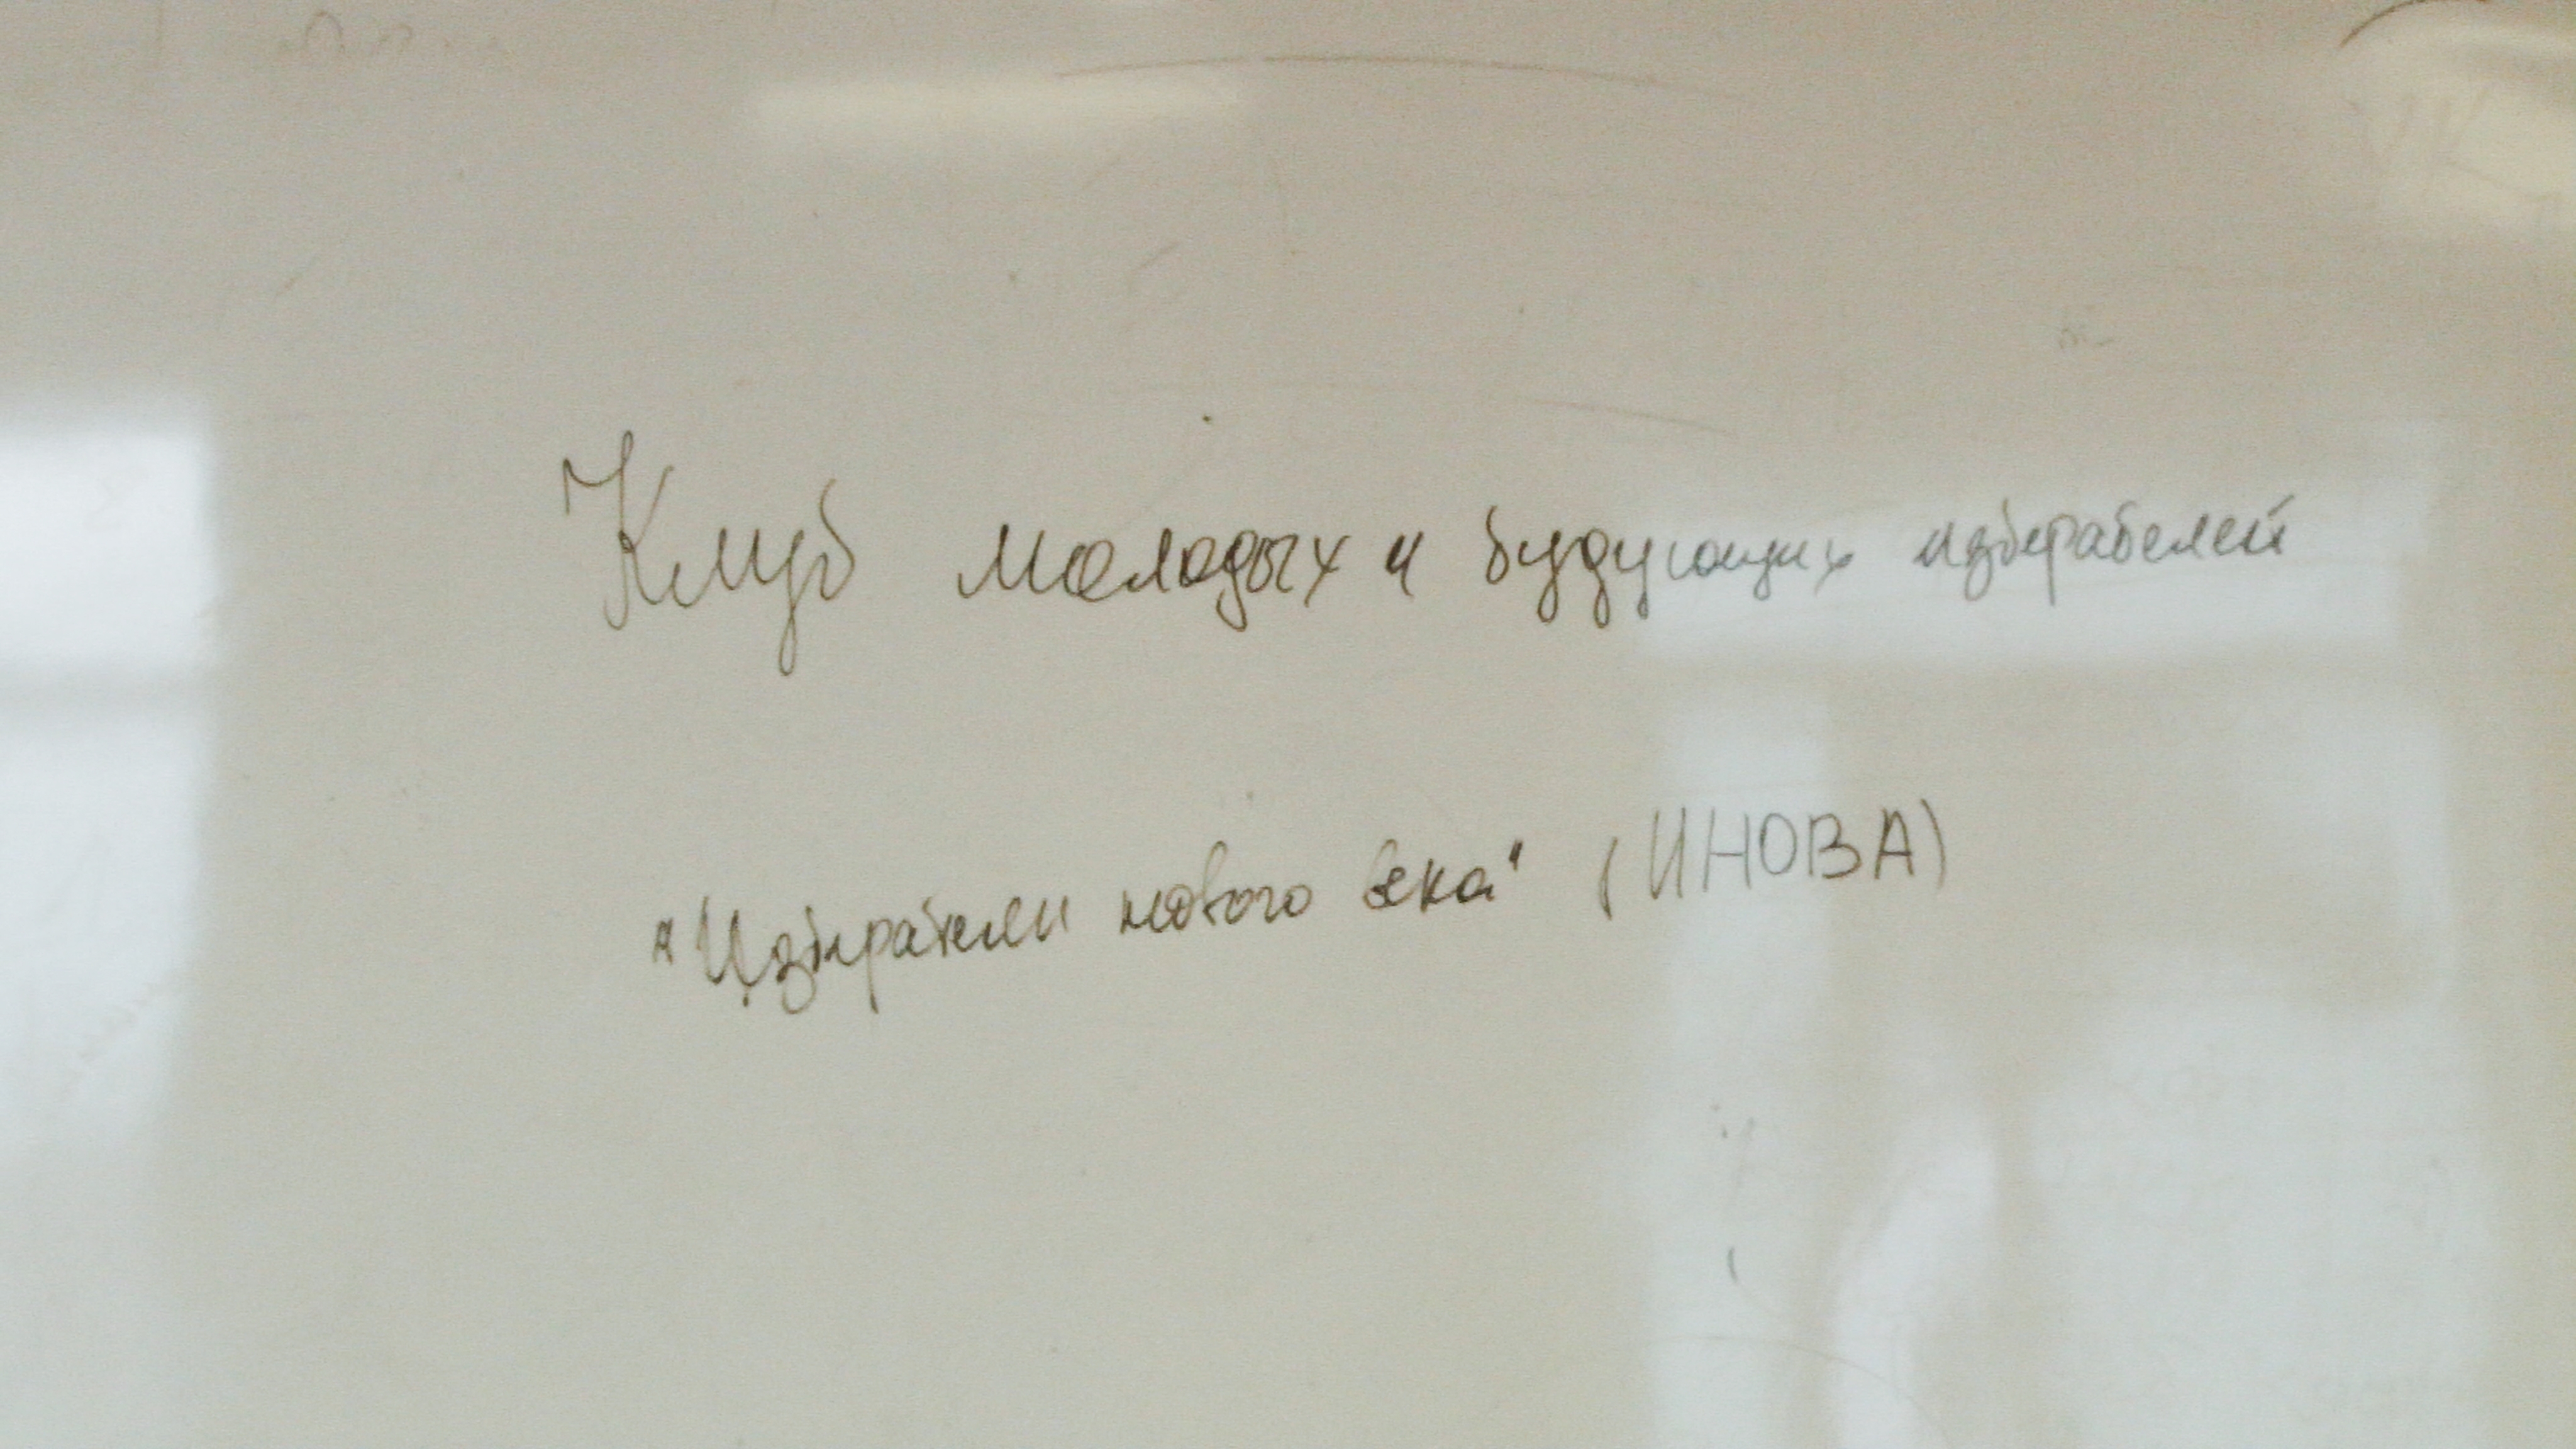 Клуб молодых и будующих избирателей
"Избиратели нового века" (ИНОВА)